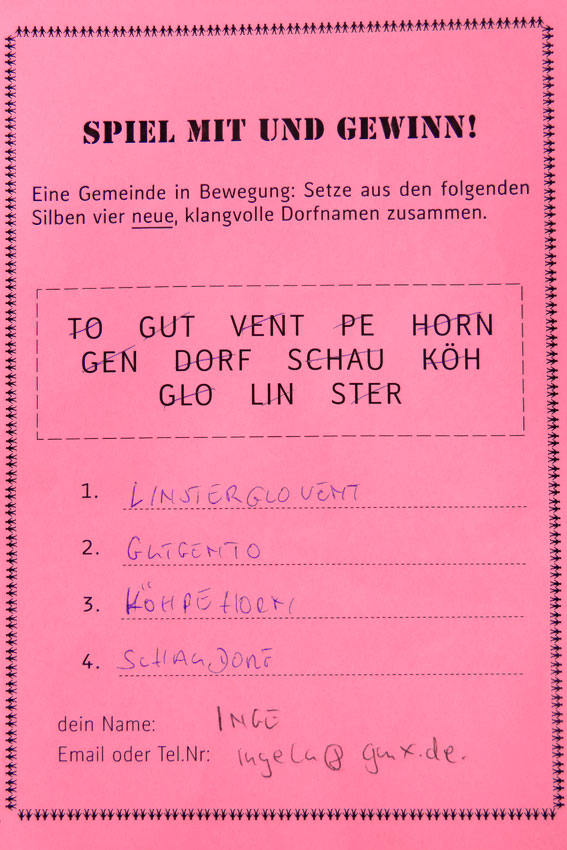 SPIEL MIT UND GEWINN!
Eine Gemeinde in Bewegung: Setze aus den folgenden
Silben vier neue, klangvolle Dorfnamen zusammen.
TO GUT VENT PE HORN
GEN DORF SCHAU KÖH
GLO LIN STER
1. LINSTERGLOVENT
2. GUTGENTO
3. KÖHPEHORN
4. SCHAUDORF
dein Name: INGE
Email oder Tel.Nr: @gmx.de.